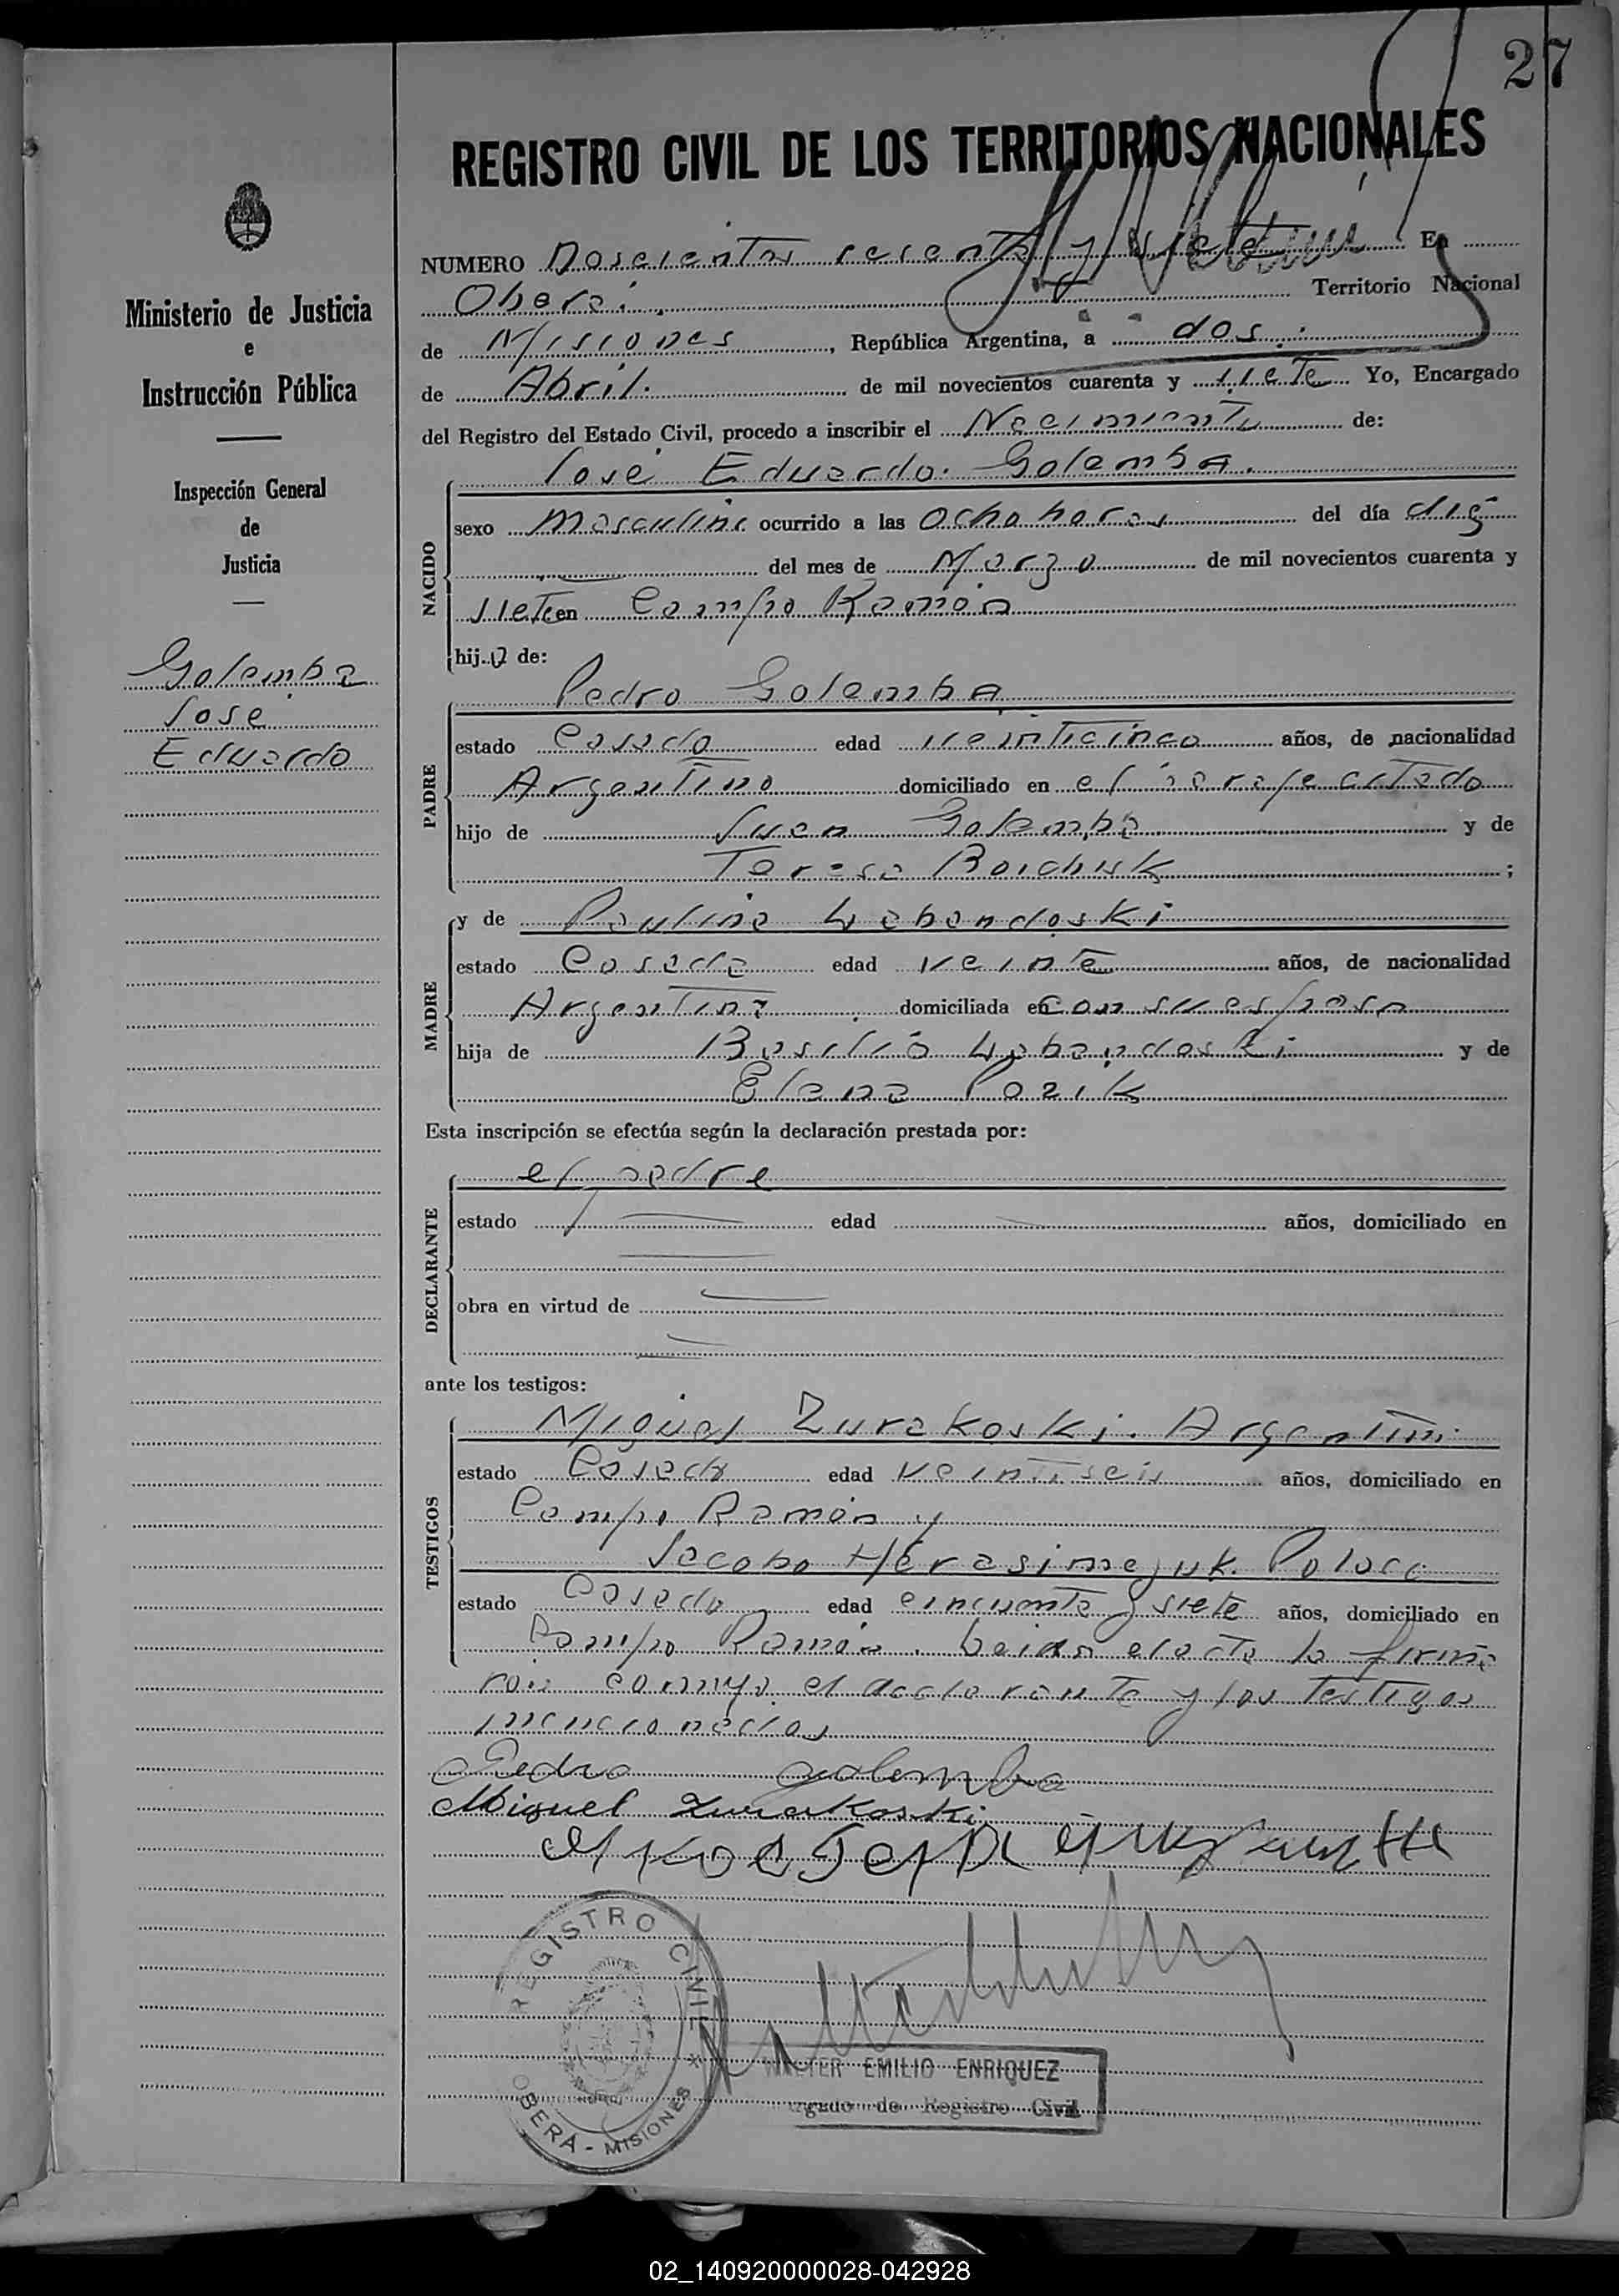 27
REGISTRO CIVIL DE LOS TERRITORIOS NACIONALES
NUMERO Doscientos sesenta y siete En
Oberá. Territorio Nacional
de Misiones, República Argentina, a dos.
de Abril. de mil novecientos cuarenta y siete Yo, Encargado
del Registro del Estado Civil, procedo a inscribir el Nacimiento de:
José Eduardo. Golemba.
NACIDO
sexo Masculino ocurrido a las Ocho horas del día diez
del mes de Marzo de mil novecientos cuarenta y
siete en Campo Ramón
hijo de:
Pedro Golemba
PADRE
estado Casado edad veinticinco años, de nacionalidad
Argentino domiciliado en el paraje citado
hijo de Juan Golemba y de
Teresa Boichuk ;
MADRE
y de Paulina Lebandoski
estado Casada edad veinte años, de nacionalidad
Argentina domiciliada en con su esposo
hija de Basilio Lebandoski y de
Elena Pozik
Esta inscripción se efectúa según la declaración prestada por:
el padre
DECLARANTE
estado edad años, domiciliado en
obra en virtud de
ante los testigos:
TESTIGOS
Miguel Zurakoski. Argentino
estado Casado edad veintiseis años, domiciliado en
Campo Ramón y
Jacobo Herasimezuk. Polaco
estado Casado edad cincuenta y siete años, domiciliado en
Campo Ramón. Leida el acta la firma
ron conmigo el declarante y los testigos
mencionados
Pedro golemba
Miguel Zurakoski
REGISTRO CIVIL
OBERÁ - MISIONES
WALTER EMILIO ENRIQUEZ
rgado de Registro Civil
Ministerio de Justicia
e
Instrucción Pública
Inspección General
de
Justicia
Golemba
José
Eduardo
02_140920000028-042928